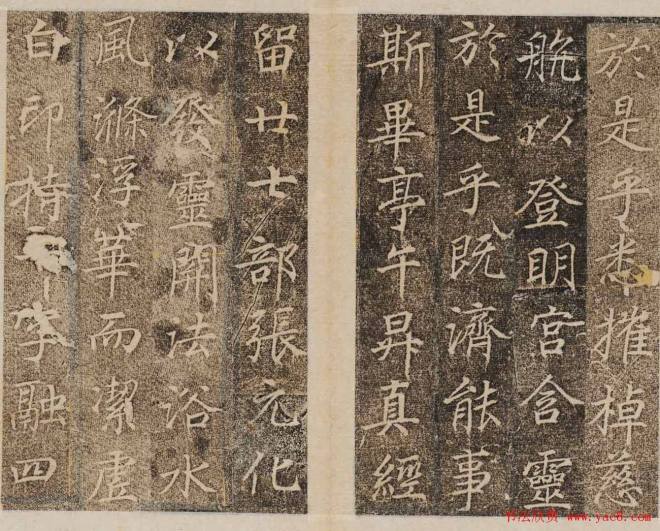 於是乎悉摧棹慈
航以登明宮含靈
於是乎既濟能事
斯畢亭午昇真經
留廿七部張元化
以發靈關法浴水
風滌浮華而潔虛
白印持 字融四
书法欣赏 www.yac8.com